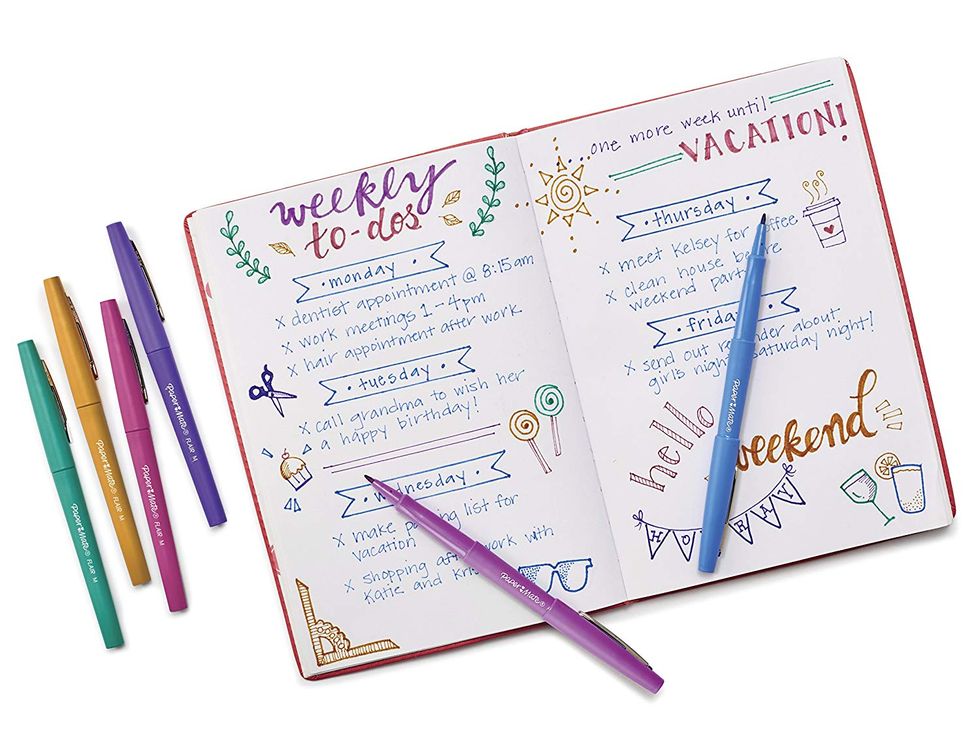 weekly
to-dos
monday
x dentist appointment @ 8:15am
x work meetings 1-4pm
x hair appointment after work
tuesday
x call grandma to wish her
a happy birthday!
wednesday
x make packing list for
vacation
x shopping after work with
Katie and
...one more week until
VACATION!
thursday
x meet Kelsey for coffee
x clean house before
weekend party
friday
x send out reminder about
girls night saturday night!
hello
weekend
HOORAY
Paper Mate® FLAIR M
Paper Mate® FLAIR M
Paper Mate® FLAIR M
Paper Mate® FLAIR M
Paper Mate®
Paper Mate®